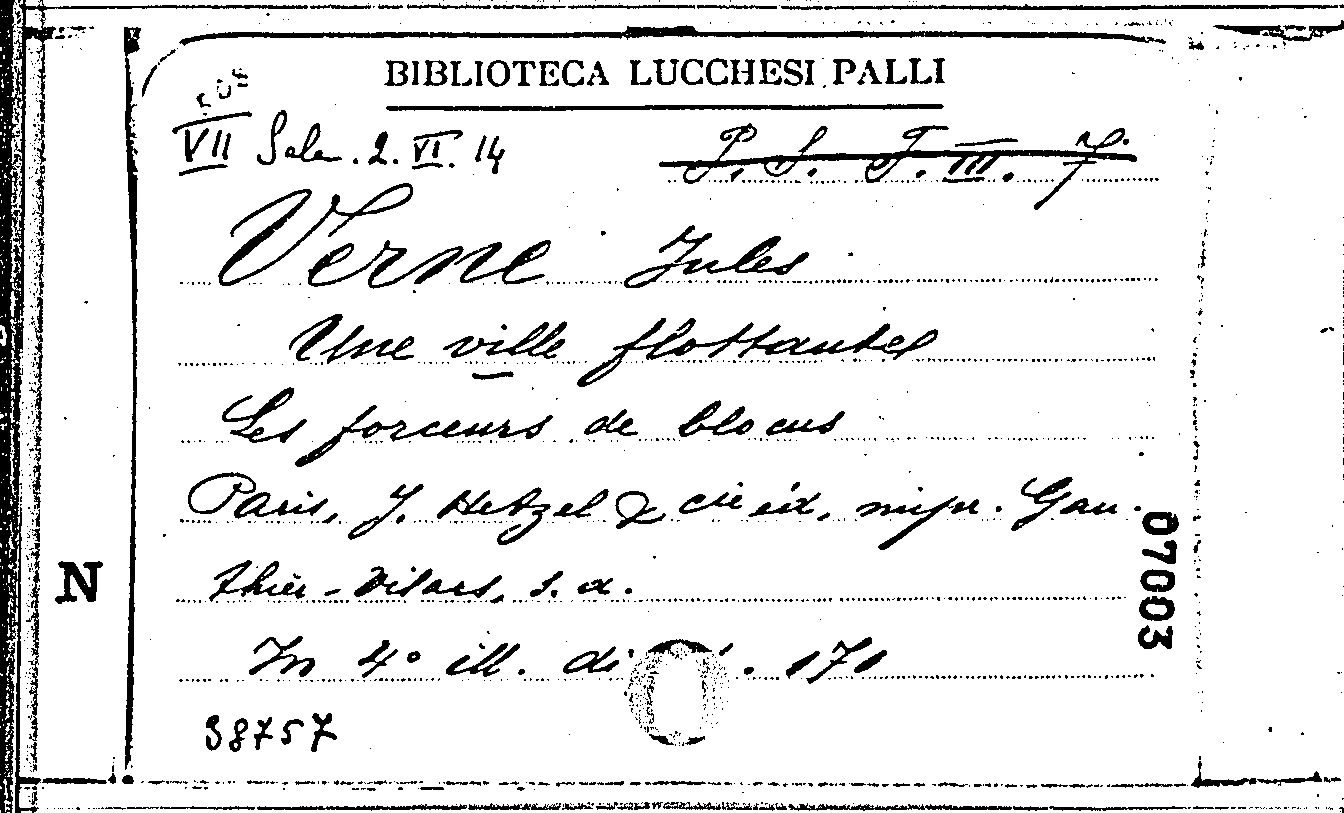 BIBLIOTECA LUCCHESI PALLI
VII Sala. 2. VI. 14
P. S. T. III. 7.
Verne Jules
Une ville flottante
Les forceurs de blocus
Paris, J. Hetzel & cie éd, impr. Gau-
thier-Villars, s. a.
In 4° ill. di . 171
38757
N
07003